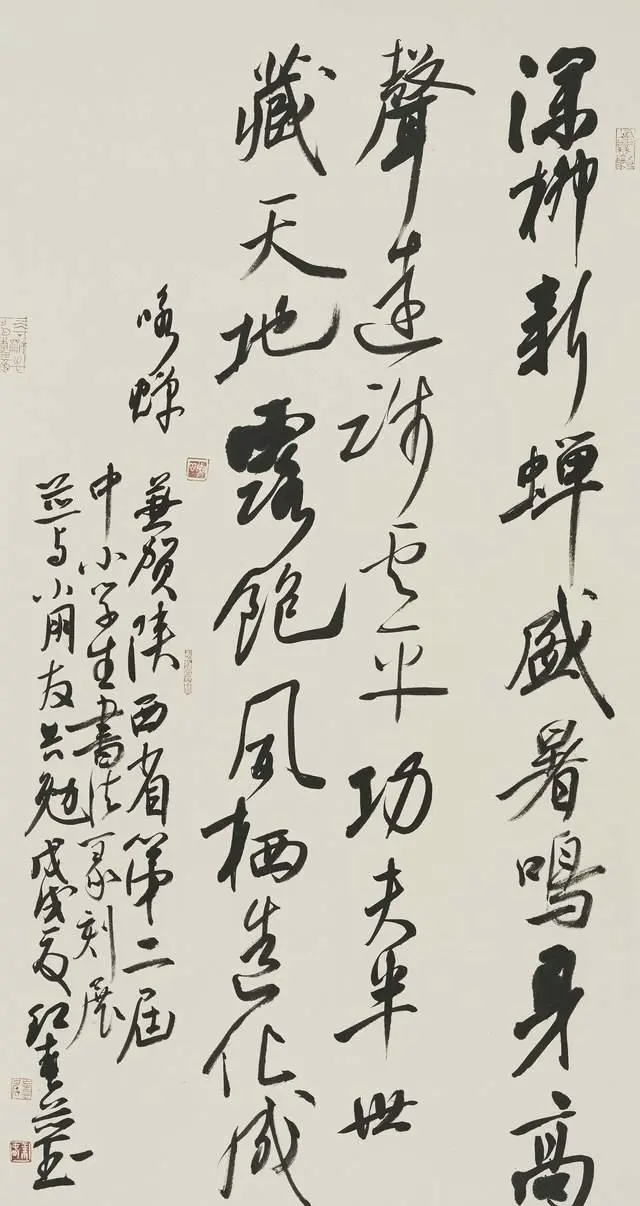 深柳新蝉盛暑鳴身高
聲遠云平功夫半世
藏天地露飽風栖造化成
咏蝉
兼贺陕西省第二届
中小学生書法篆刻展
并与小朋友共勉戊戌夏红春